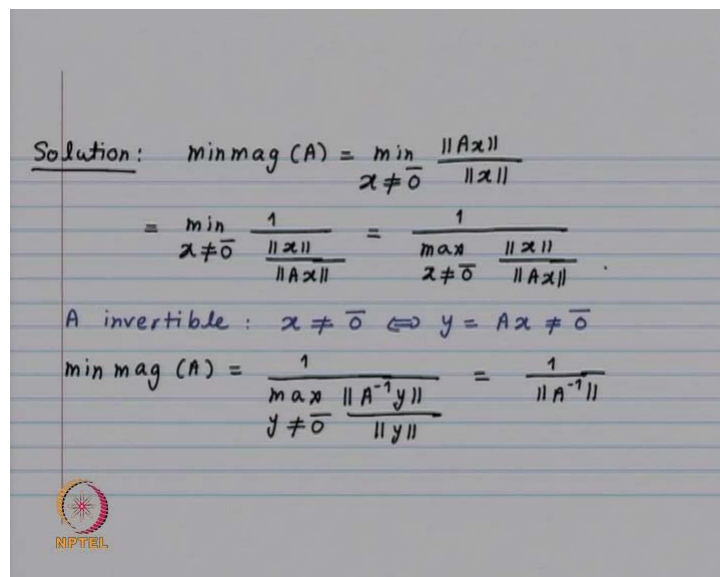 Solution: minmag (A) = min x ≠ 0̅ ||Ax|| / ||x||
= min x ≠ 0̅ 1 / (||x|| / ||Ax||) = 1 / (max x ≠ 0̅ ||x|| / ||Ax||) .
A invertible : x ≠ 0̅ ⇔ y = Ax ≠ 0̅
min mag (A) = 1 / (max y ≠ 0̅ ||A⁻¹y|| / ||y||) = 1 / ||A⁻¹||
NPTEL